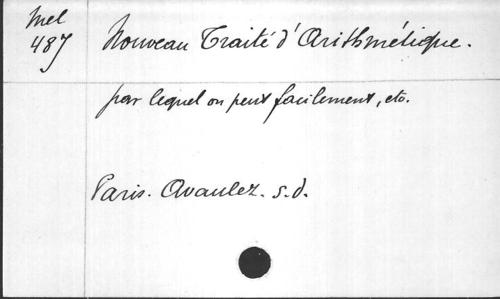 Mel
487
Nouveau Traité d'Arithmétique.
par lequel on peut facilement, etc.
Paris. Avaulez. s.d.